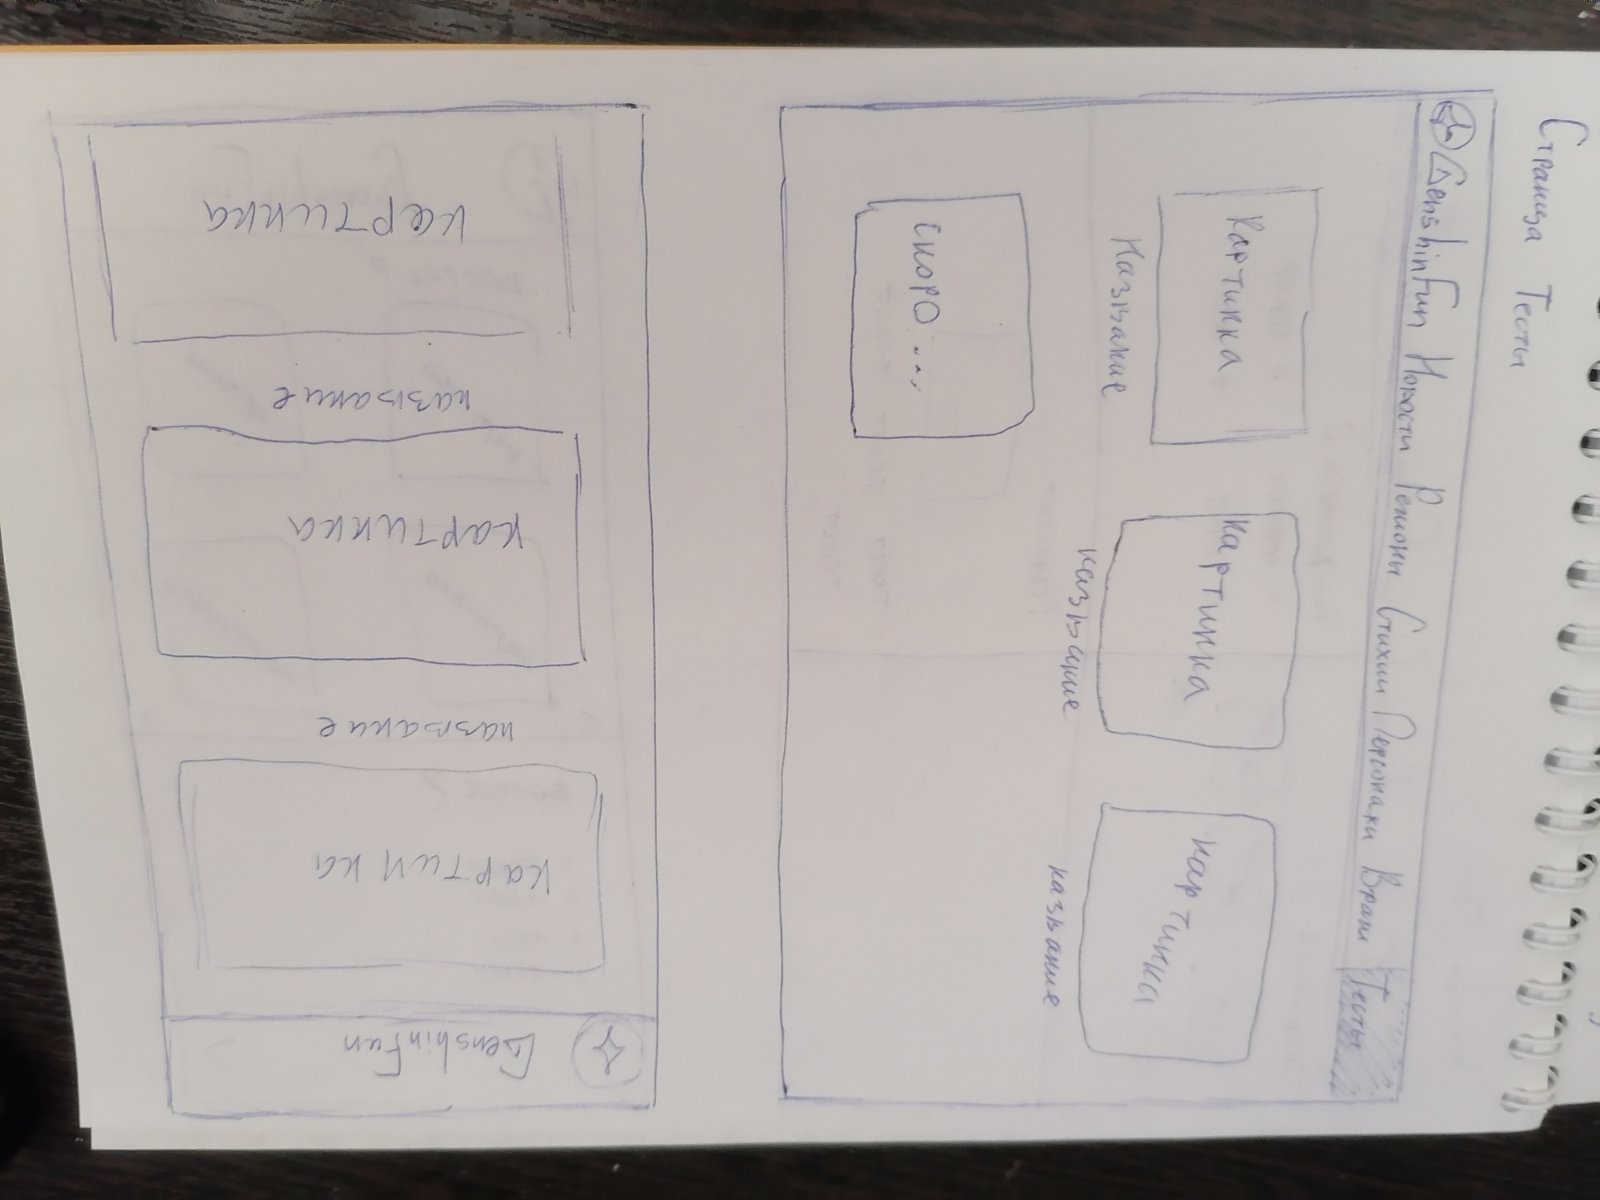 Страница Тесты
GenshinFun Новости Регионы Стихии Персонажи Враги Тесты
Картинка
картинка
картинка
Название
название
название
Скоро...
GenshinFun
картинка
название
картинка
название
картинка